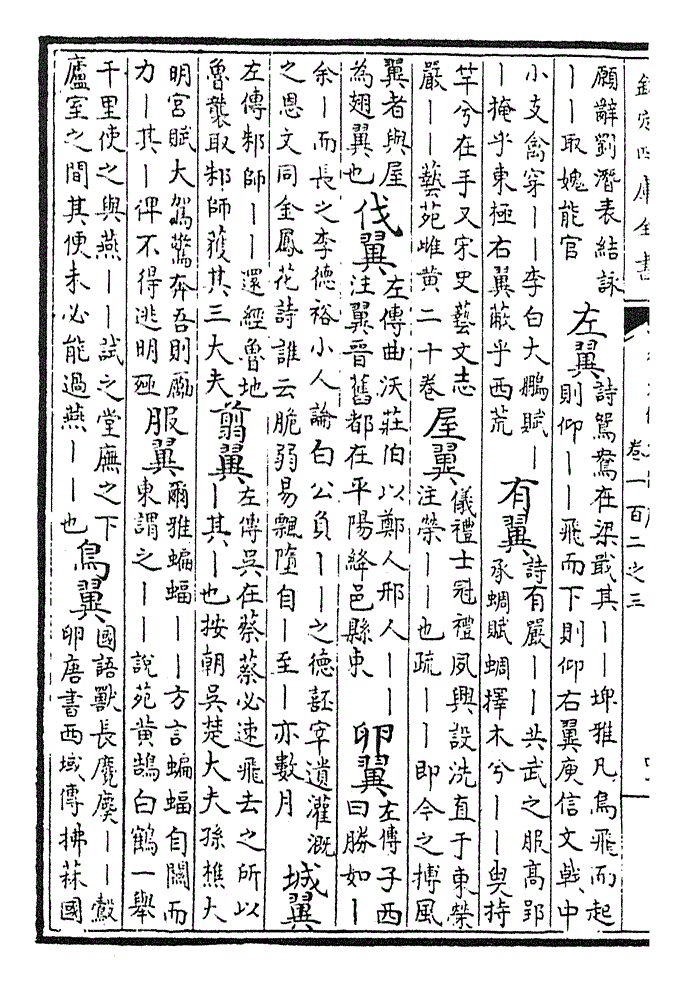 欽定四庫全書
卷一百二之三
願辭劉潛表結詠
丨丨取媿能官
左翼
詩鴛鴦在梁戢其丨丨埤雅凡鳥飛而起
則仰丨丨飛而下則仰右翼庾信文戟中
小支禽穿丨丨李白大鵬賦丨
丨掩乎東極右翼蔽乎西荒
有翼
詩有嚴丨丨共武之服高郢
承蜩賦蜩擇木兮丨丨臾持
竿兮在手又宋史藝文志
嚴丨丨藝苑雌黄二十卷
屋翼
儀禮士冠禮夙興設洗直于東榮
注榮丨丨也疏丨丨即今之搏風
翼者與屋
為翅翼也
伐翼
左傳曲沃莊伯以鄭人邢人丨丨
注翼晉舊都在平陽絳邑縣東
卵翼
左傳子西
曰勝如丨
余丨而長之李德裕小人論白公負丨丨之德宰遺灌溉
之恩文同金鳳花詩誰云脆弱易飄墮自丨至丨亦數月
城翼
左傳邾師丨丨還經魯地
魯襲取邾師獲其三大夫
翦翼
左傳吳在蔡蔡必速飛去之所以
丨其丨也按朝吳楚大夫孫樵大
明宫賦大駕驚奔吾則勵
力丨其丨俾不得逃明殛
服翼
爾雅蝙蝠丨丨方言蝙蝠自關而
東謂之丨丨説苑黄鵠白鶴一舉
千里使之與燕丨丨試之堂廡之下
廬室之間其便未必能過燕丨丨也
鳥翼
國語獸長麑䴠丨丨鷇
卵唐書西域傳拂菻國